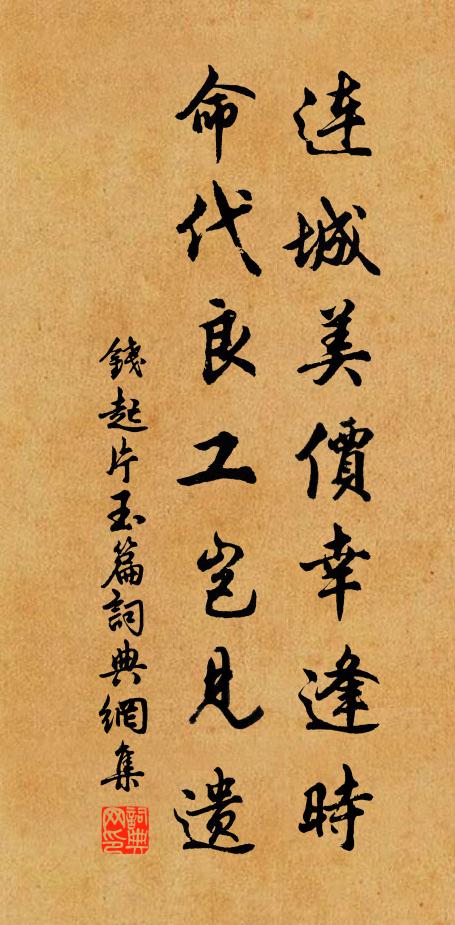 連城美價幸逢時
命代良工豈見遺
錢起片玉篇詞典網集
詞典网印